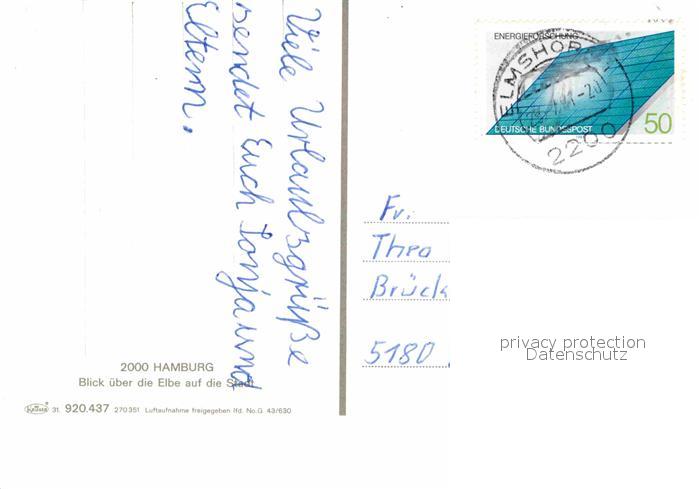 Viele Urlaubsgrüße
sendet Euch Tonja und
Eltern.
ENERGIEFORSCHUNG
DEUTSCHE BUNDESPOST
50
ELMSHOR
2200
Fr.
Theo
Brück
5180
privacy protection
Datenschutz
2000 HAMBURG
Blick über die Elbe auf die Stadt
KRÜGER 31. 920.437 270351 Luftaufnahme freigegeben lfd. No. G 43/630